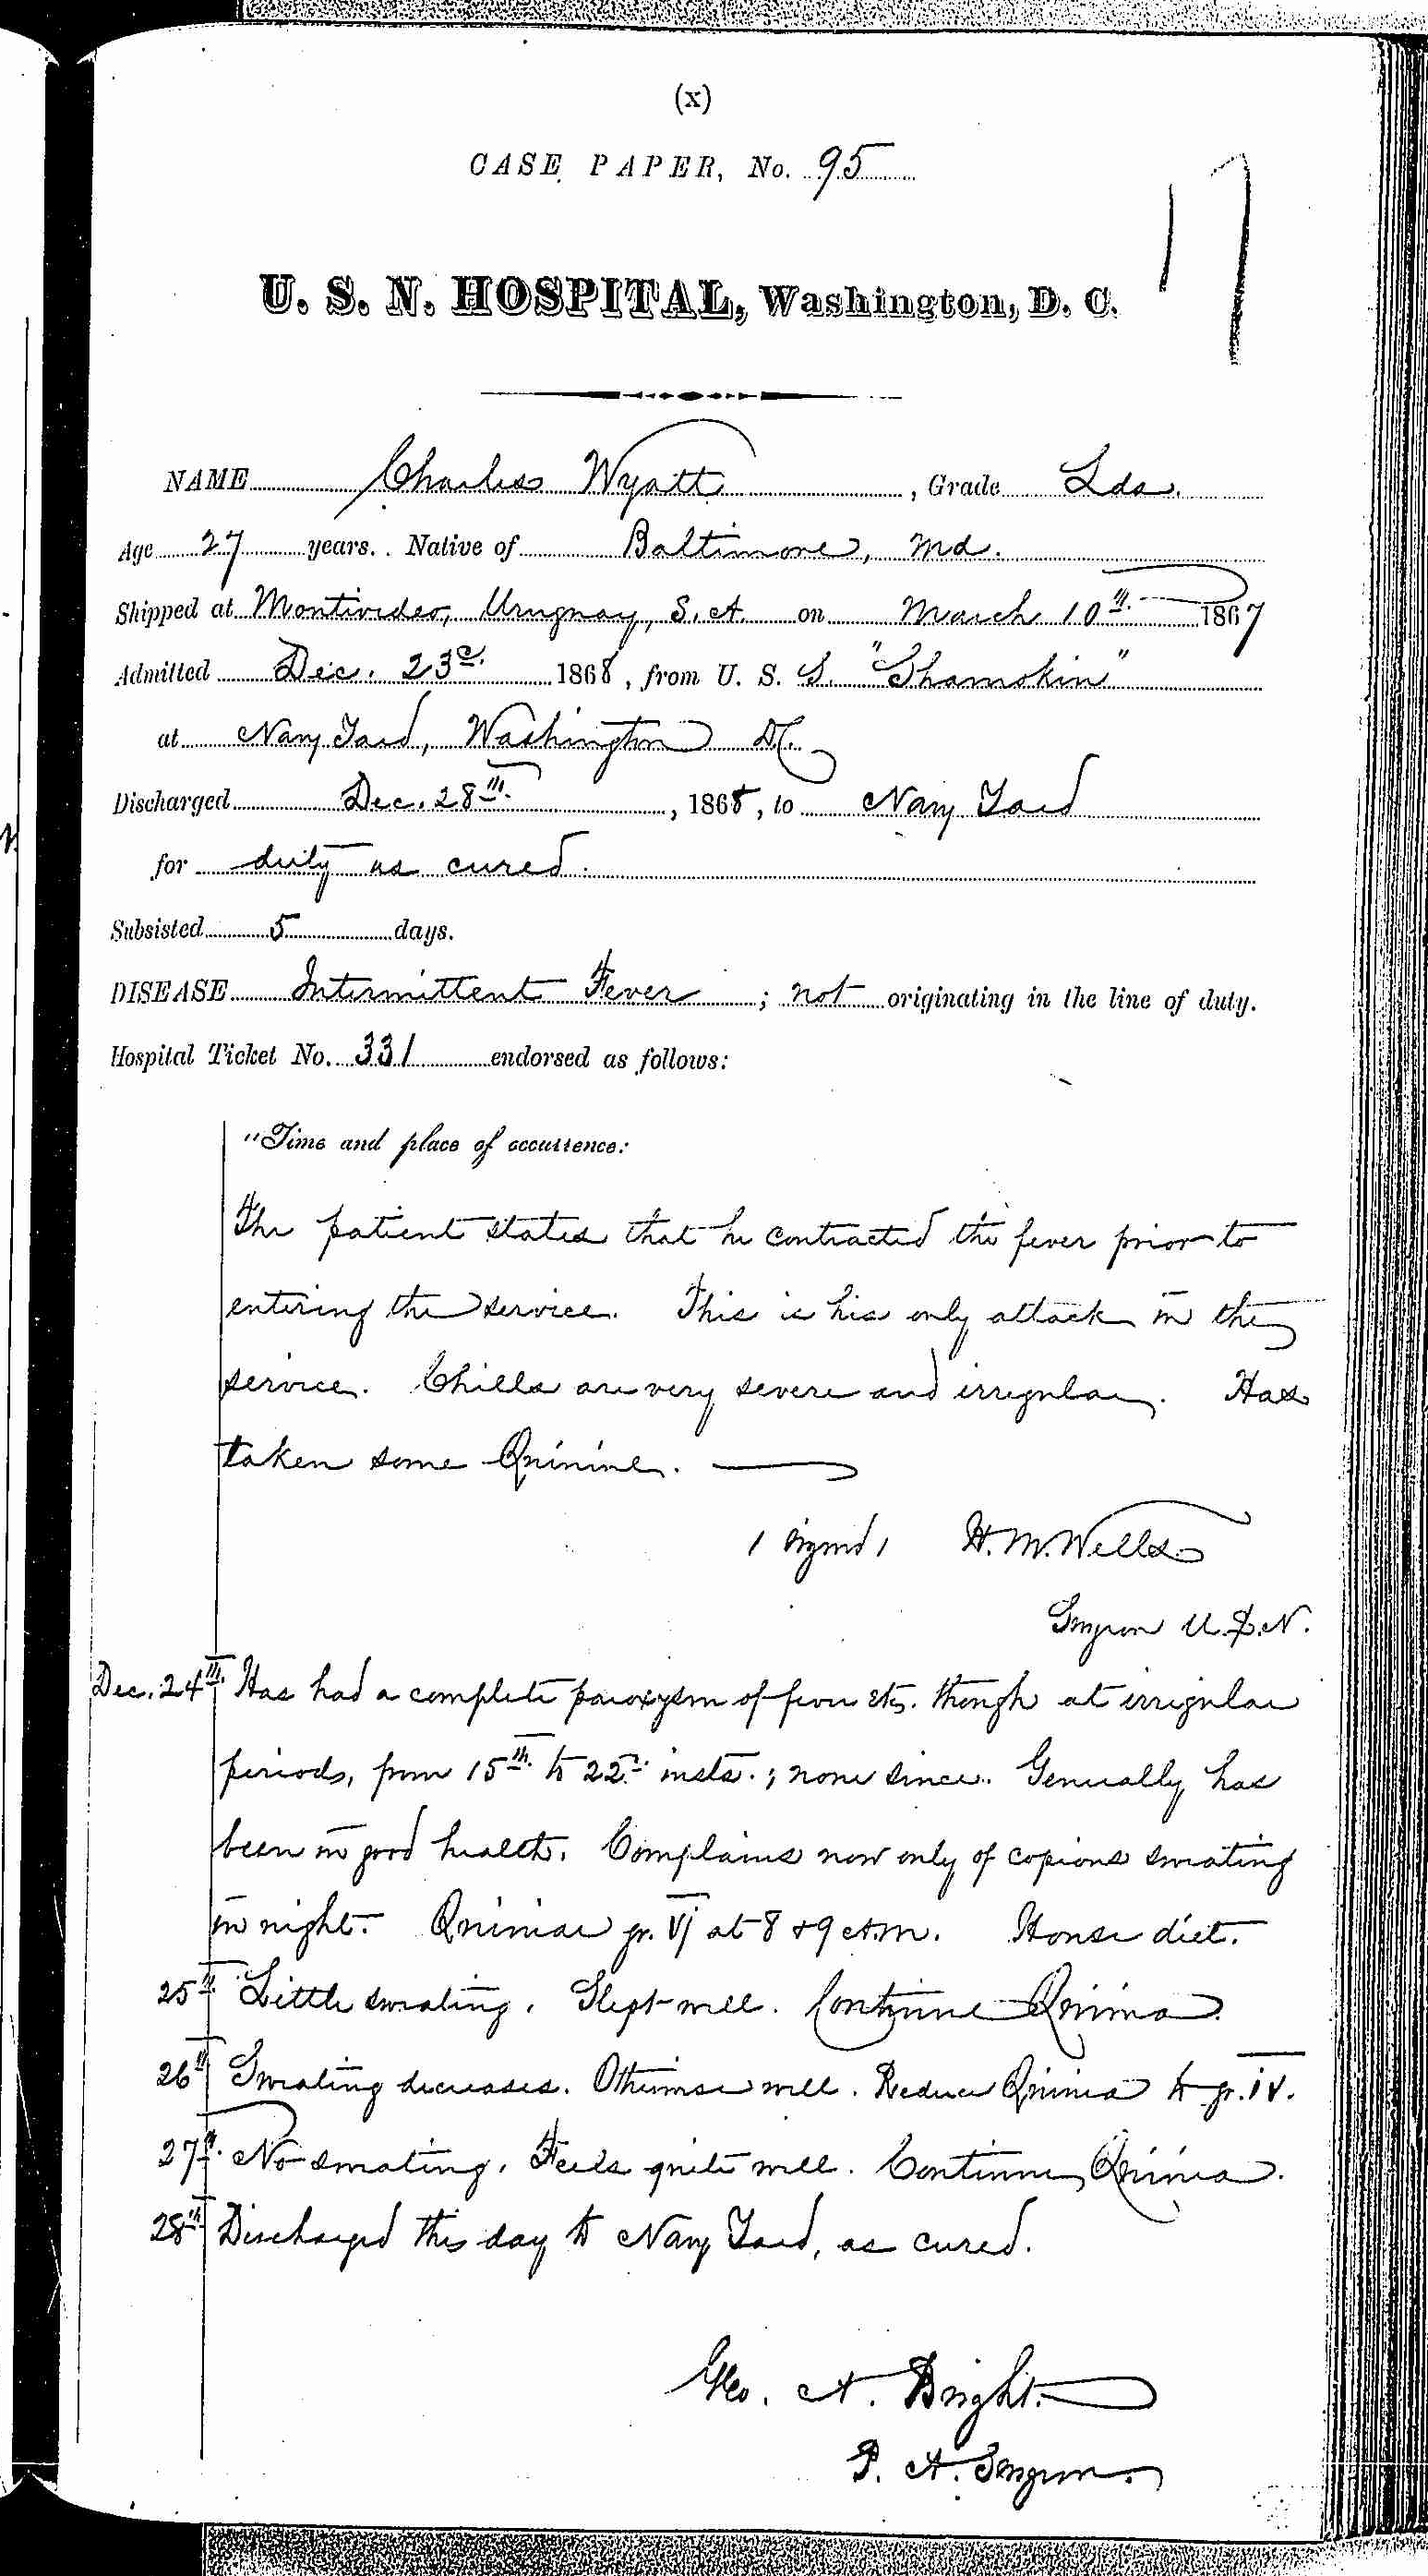 (x)
CASE PAPER, No. 95
17
U. S. N. HOSPITAL, Washington, D. C.
NAME Charles Wyatt, Grade Lds.
Age 27 years. Native of Baltimore, Md.
Shipped at Montivideo, Uruguay, S. A. on March 10th. 1867
Admitted Dec. 23d. 1868, from U. S. S. "Shamokin"
at Navy Yard, Washington D.C.
Discharged Dec. 28th., 1868, to Navy Yard
for duty as cured.
Subsisted 5 days.
DISEASE Intermittent Fever; not originating in the line of duty.
Hospital Ticket No. 331 endorsed as follows:
"Time and place of occurrence:
The patient states that he contracted the fever prior to
entering the service. This is his only attack in the
service. Chills are very severe and irregular. Has
taken some Quinine.
/ signed / H. M. Wells
Surgeon U.S.N.
Dec. 24th. Has had a complete paroxysm of fever etc. though at irregular
periods, from 15th. to 22d. insts.; none since. Generally has
been in good health. Complains now only of copious sweating
in night. Quiniae gr. vj at 8 & 9 A.M. House diet.
25th Little sweating. Slept well. Continue Quinia.
26th Sweating decreases. Otherwise well. Reduce Quinia to gr. iv.
27th. No sweating. Feels quite well. Continue Quinia.
28th Discharged this day to Navy Yard, as cured.
Geo. A. Bright.
P. A. Surgeon.